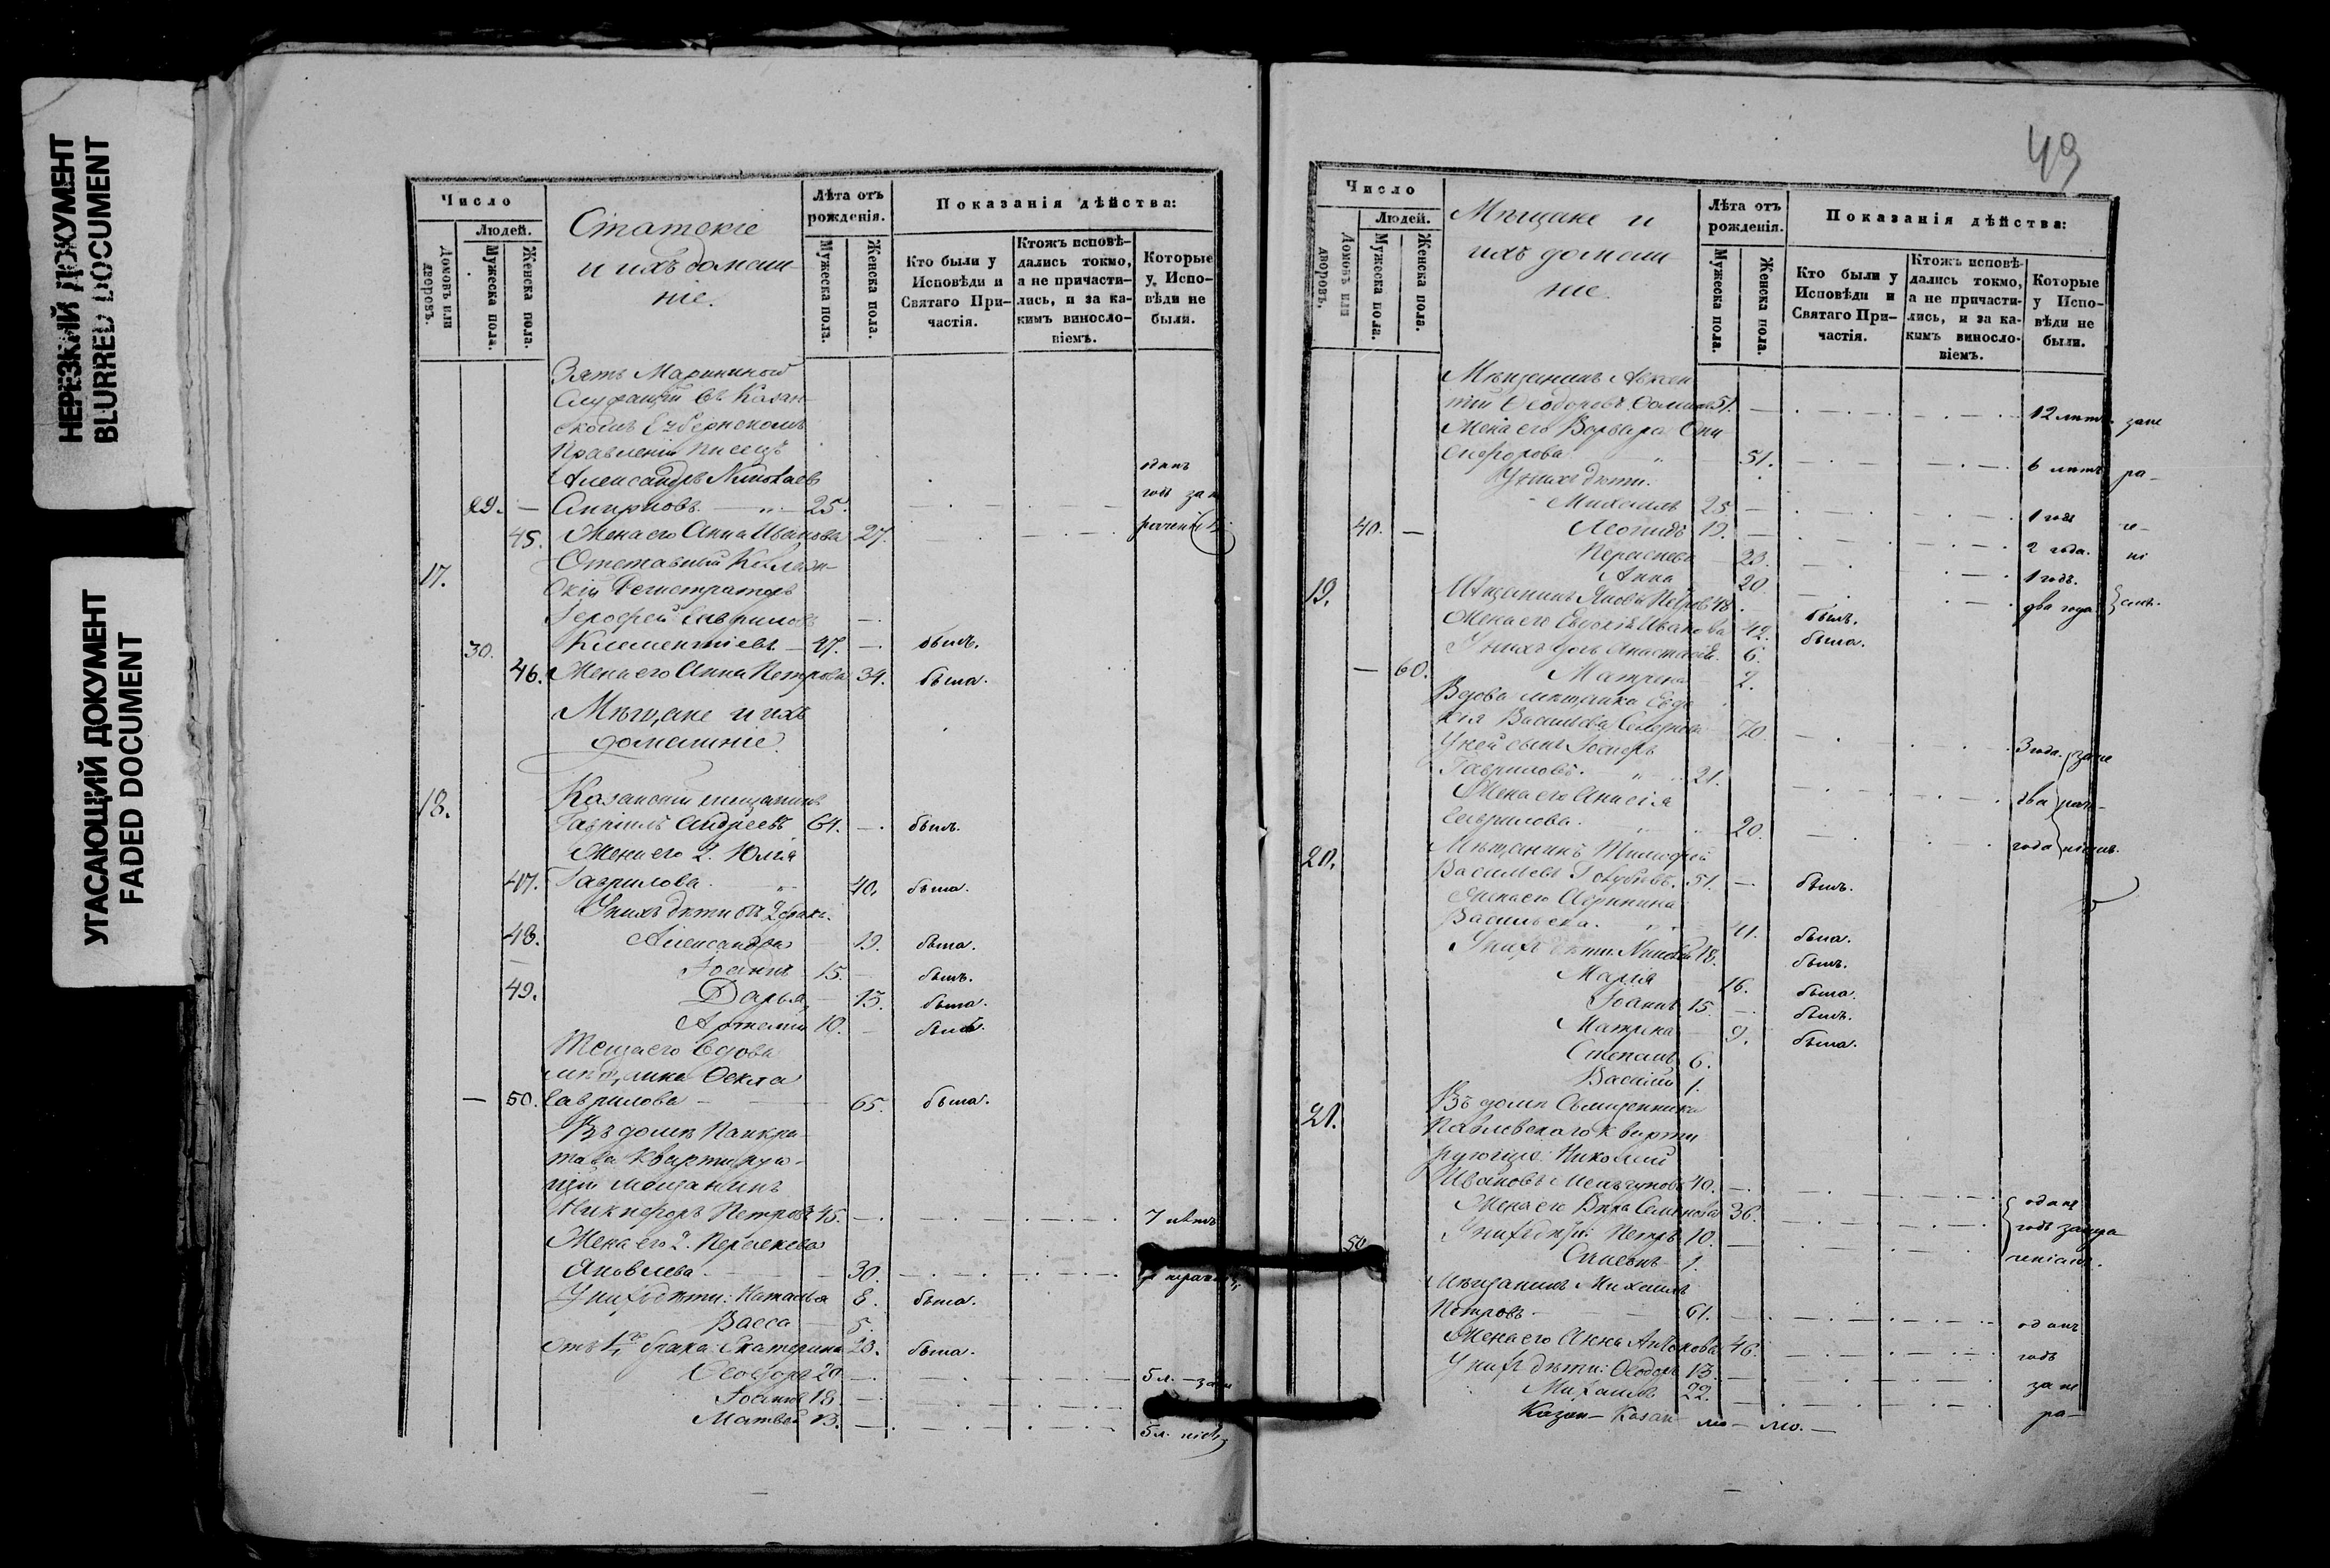 НЕРЕЗКИЙ ДОКУМЕНТ
BLURRED DOCUMENT
УГАСАЮЩИЙ ДОКУМЕНТ
FADED DOCUMENT
Число
Людей.
Домовъ или дворовъ.
Мужеска пола.
Женска пола.
Статскіе
и ихъ домаш-
ніе.
Лѣта отъ
рожденія.
Мужеска пола.
Женска пола.
Показанія дѣйства:
Кто были у
Исповѣди и
Святаго При-
частія.
Ктожъ исповѣ-
дались токмо,
а не причасти-
лись, и за ка-
кимъ виносло-
віемъ.
Которые
у Испо-
вѣди не
были.
Зять Марининой
Служащій въ Казан-
скомъ Губернскомъ
Правленіи писецъ
Александръ Николаевъ одинъ
29. — Смирновъ — 25. годъ за не
45. Жена его Анна Иванова 27.
17. Отставный Коллеж-
скій Регистраторъ
Іерофей Гавриловъ
30. Клементіевъ — 47. — былъ.
46. Жена его Анна Петрова 34. была.
Мѣщане и ихъ
домашніе.
18. Казанскій мещанинъ
Гавріилъ Андреевъ 64. — былъ.
Жена его 2. Юлія
47. Гаврилова 40. была.
У нихъ дѣти отъ 2 брака.
48. Александра 19. была.
Іоаннъ 15. — былъ.
49. Дарья 13. была.
Артемій 10. — былъ.
Теща его вдова
мѣщанка Ѳекла
— 50. Гаврилова — 65. была.
Въ домѣ Панкра-
това квартирую-
щій мещанинъ
Никифоръ Петровъ 45. — 7 лѣтъ
Жена его 2. Параскева
Яковлева 30.
У нихъ дѣти: Наталья 8. была.
Васса 5.
Отъ 1го брака: Екатерина 23. была.
Ѳеодоръ 20. — 5 л. — за не
Іоаннъ 18. —
Матвей 13. — 5 л. ніемъ
49
Число
Людей.
Домовъ или дворовъ.
Мужеска пола.
Женска пола.
Мѣщане и
ихъ домаш-
ніе.
Лѣта отъ
рожденія.
Мужеска пола.
Женска пола.
Показанія дѣйства:
Кто были у
Исповѣди и
Святаго При-
частія.
Ктожъ исповѣ-
дались токмо,
а не причасти-
лись, и за ка-
кимъ виносло-
віемъ.
Которые
у Испо-
вѣди не
были.
Мѣщанинъ Авксен-
тій Ѳеодоровъ 51. — 12 лѣтъ. за не
Жена его Варвара Они-
сифорова 51. 6 лѣтъ ра-
У нихъ дѣти:
Михаилъ 25 — 1 годъ че-
40. — Леонидъ 19. — 2 года. ні
Параскева 23. 1 годъ.
Анна 20. два года емъ.
19. Мѣщанинъ Яковъ Петровъ 48. былъ.
Жена его Евдокія Иванова 42. была.
У нихъ дочь Анастасія 6.
— 60. Матрена 2.
Вдова мѣщанка Евдо-
кія Васильева 70. 3 года. за не
У ней сынъ Іосифъ
Гавриловъ. 21. два рач-
Жена его Анисія
Гаврилова. 20. года ніемъ.
20. Мѣщанинъ Тимофей
Васильевъ Голубевъ. 51. — былъ.
Жена его
Васильева. 41. была.
У нихъ дѣти: Николай 18. былъ.
Марія 16. была.
Іоаннъ 15. — былъ.
Матрена 9. была.
Степанъ 6.
Василій 1.
21. Въ домѣ Священника
Павловскаго кварти-
рующіе: Николай
Ивановъ 40. — одинъ
Жена его Вѣра Семенова 36. годъ за нера
50 У нихъ дѣти: Петръ 10. —
Симеонъ 1. ченіемъ.
Мѣщанинъ Михаилъ
Петровъ 61. — одинъ
Жена его Анна Антонова 46. годъ
У нихъ дѣти: Ѳеодоръ 13. — за не
Михаилъ 22. — ра-